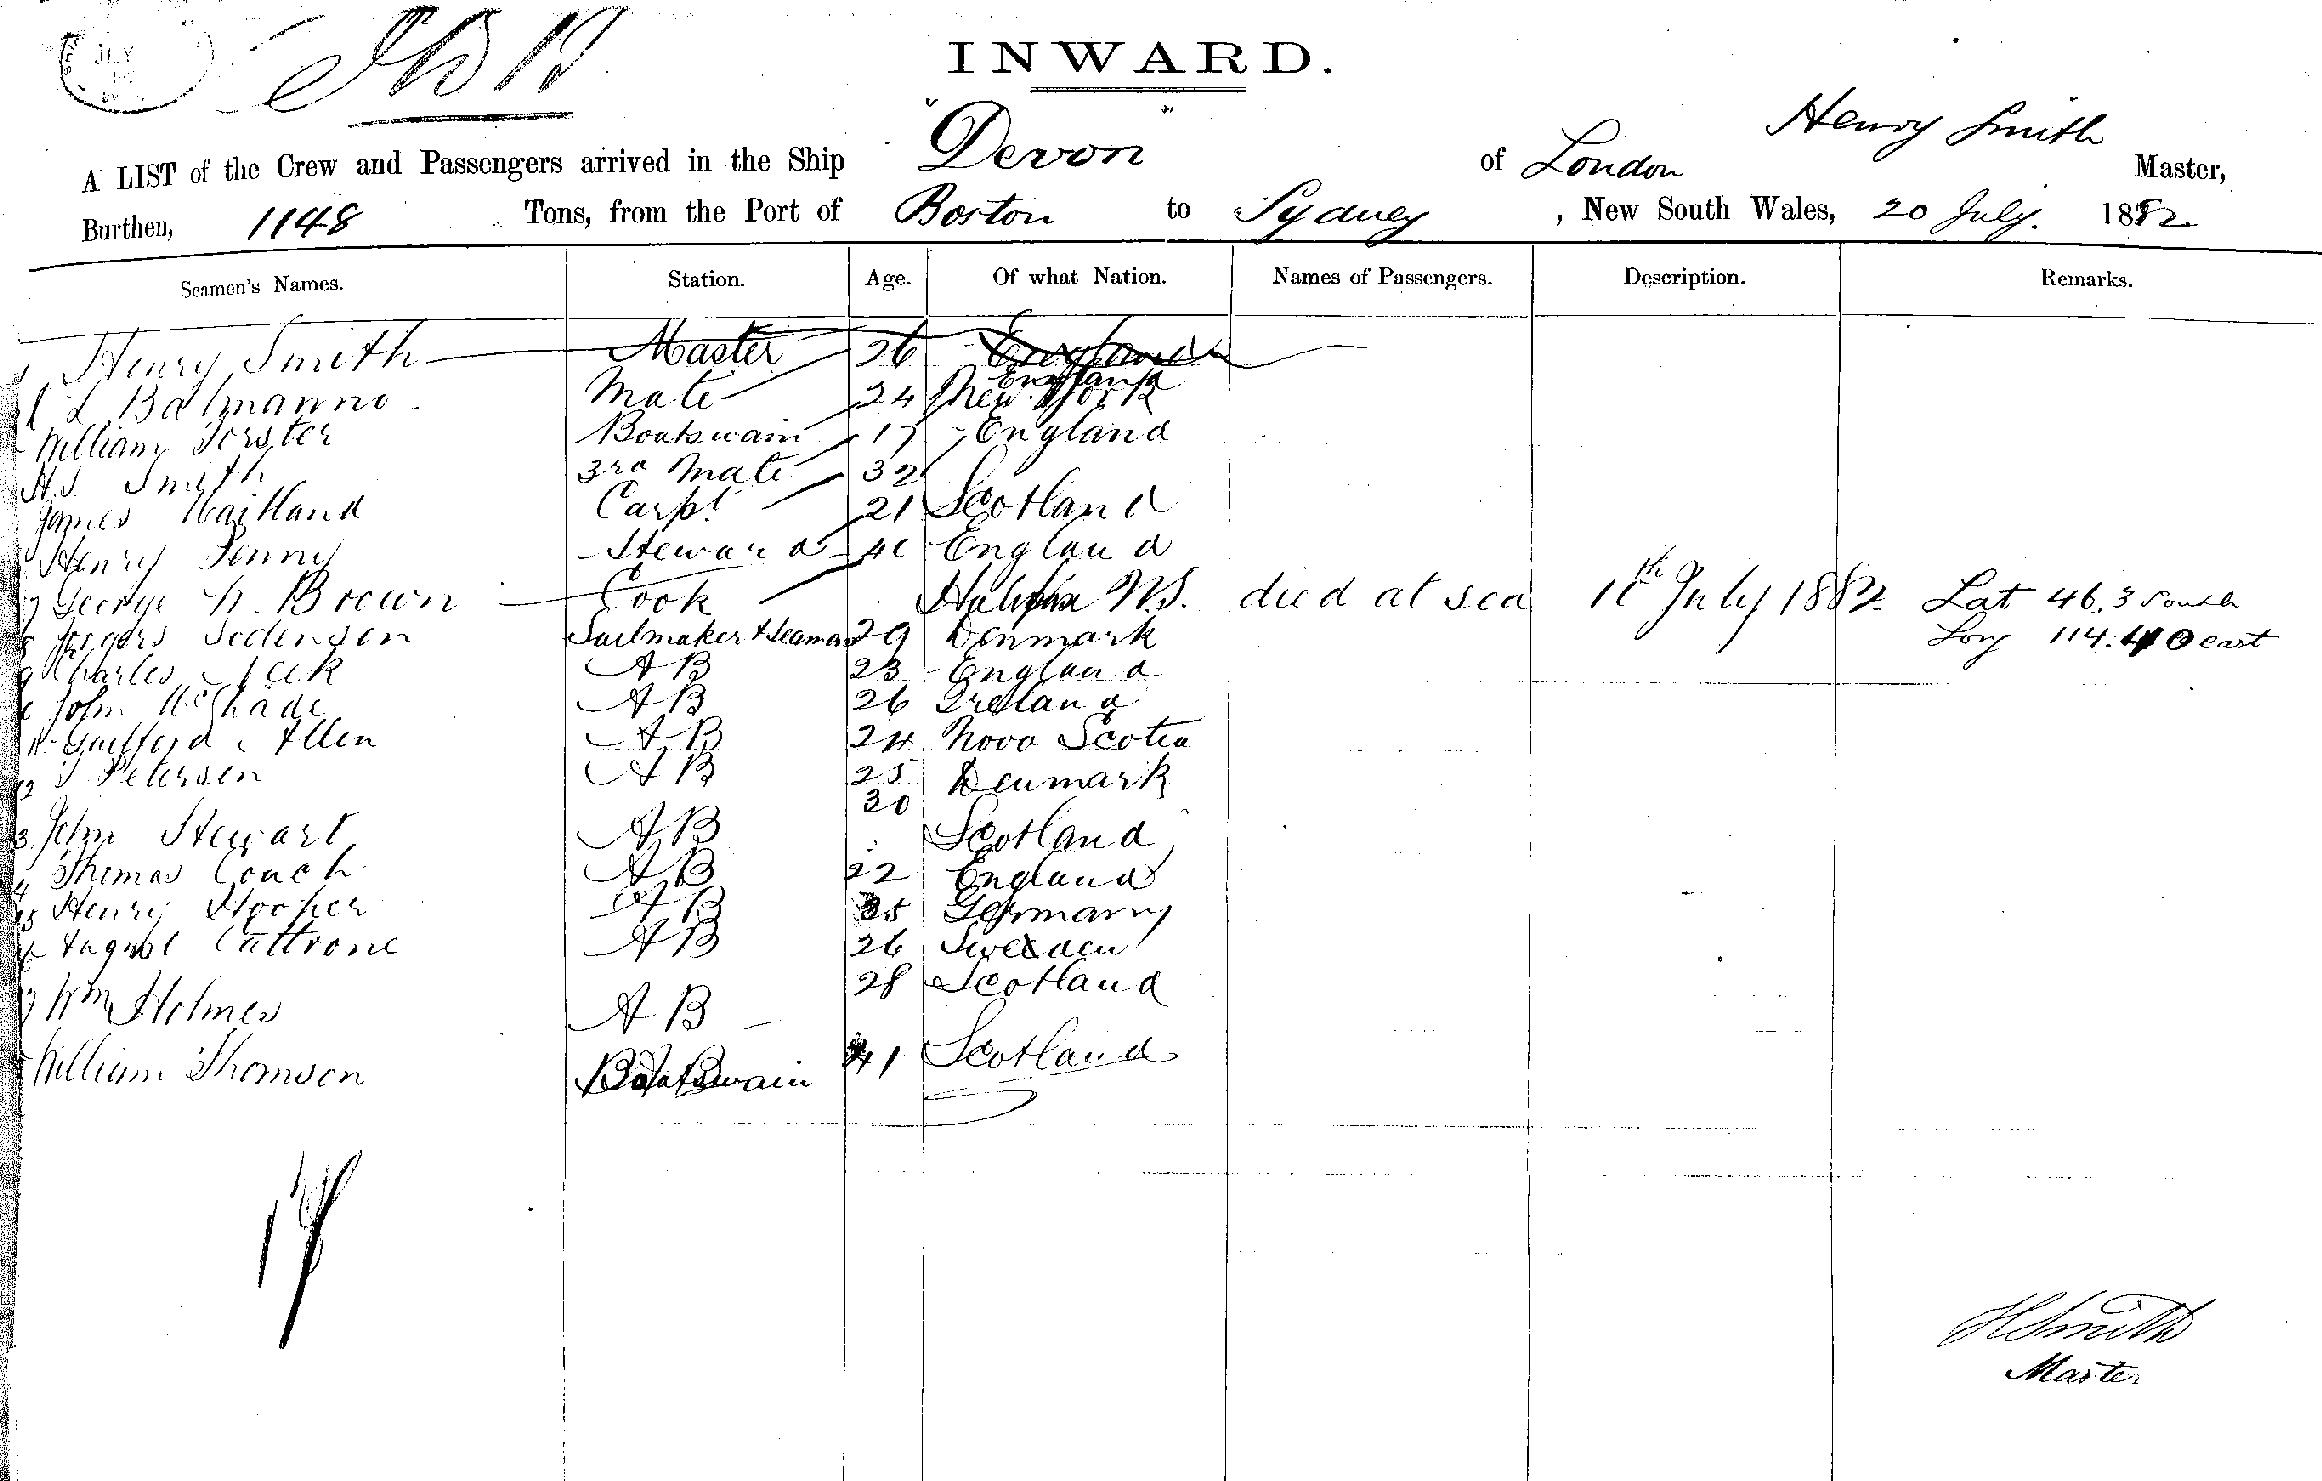 JLY
INWARD.
A LIST of the Crew and Passengers arrived in the Ship "Devon" of London Henry Smith Master,
Burthen, 1148 Tons, from the Port of Boston to Sydney, New South Wales, 20 July. 1882
Seamen's Names. Station. Age. Of what Nation. Names of Passengers. Description. Remarks.
Henry Smith Master 26 England England
L Balmanno Mate 24 New York
William Forster Boatswain 17 England
H.S. Smith 3rd Mate 32
James Maitland Carpt 21 Scotland
Henry Penny Steward England
George N. Brown Cook Halifax N.S. died at sea July 1882 Lat 46.3 South
8 Sailmaker & Seaman 29 Denmark Long 114.40 east
9 Charles A B 23 England
John McShade A B 26 Ireland
11 Guilford Allen A B 24 Nova Scotia
12 Petersen A B 25 Denmark
3 John Stewart A B 30 Scotland
Thomas Couch A B 22 England
15 Henry Hooper A B 25 Germany
August Cattrone A B 26 Sweden
Wm Holmes A B 28 Scotland
William Thomson Boatswain 41 Scotland
H Smith
Master